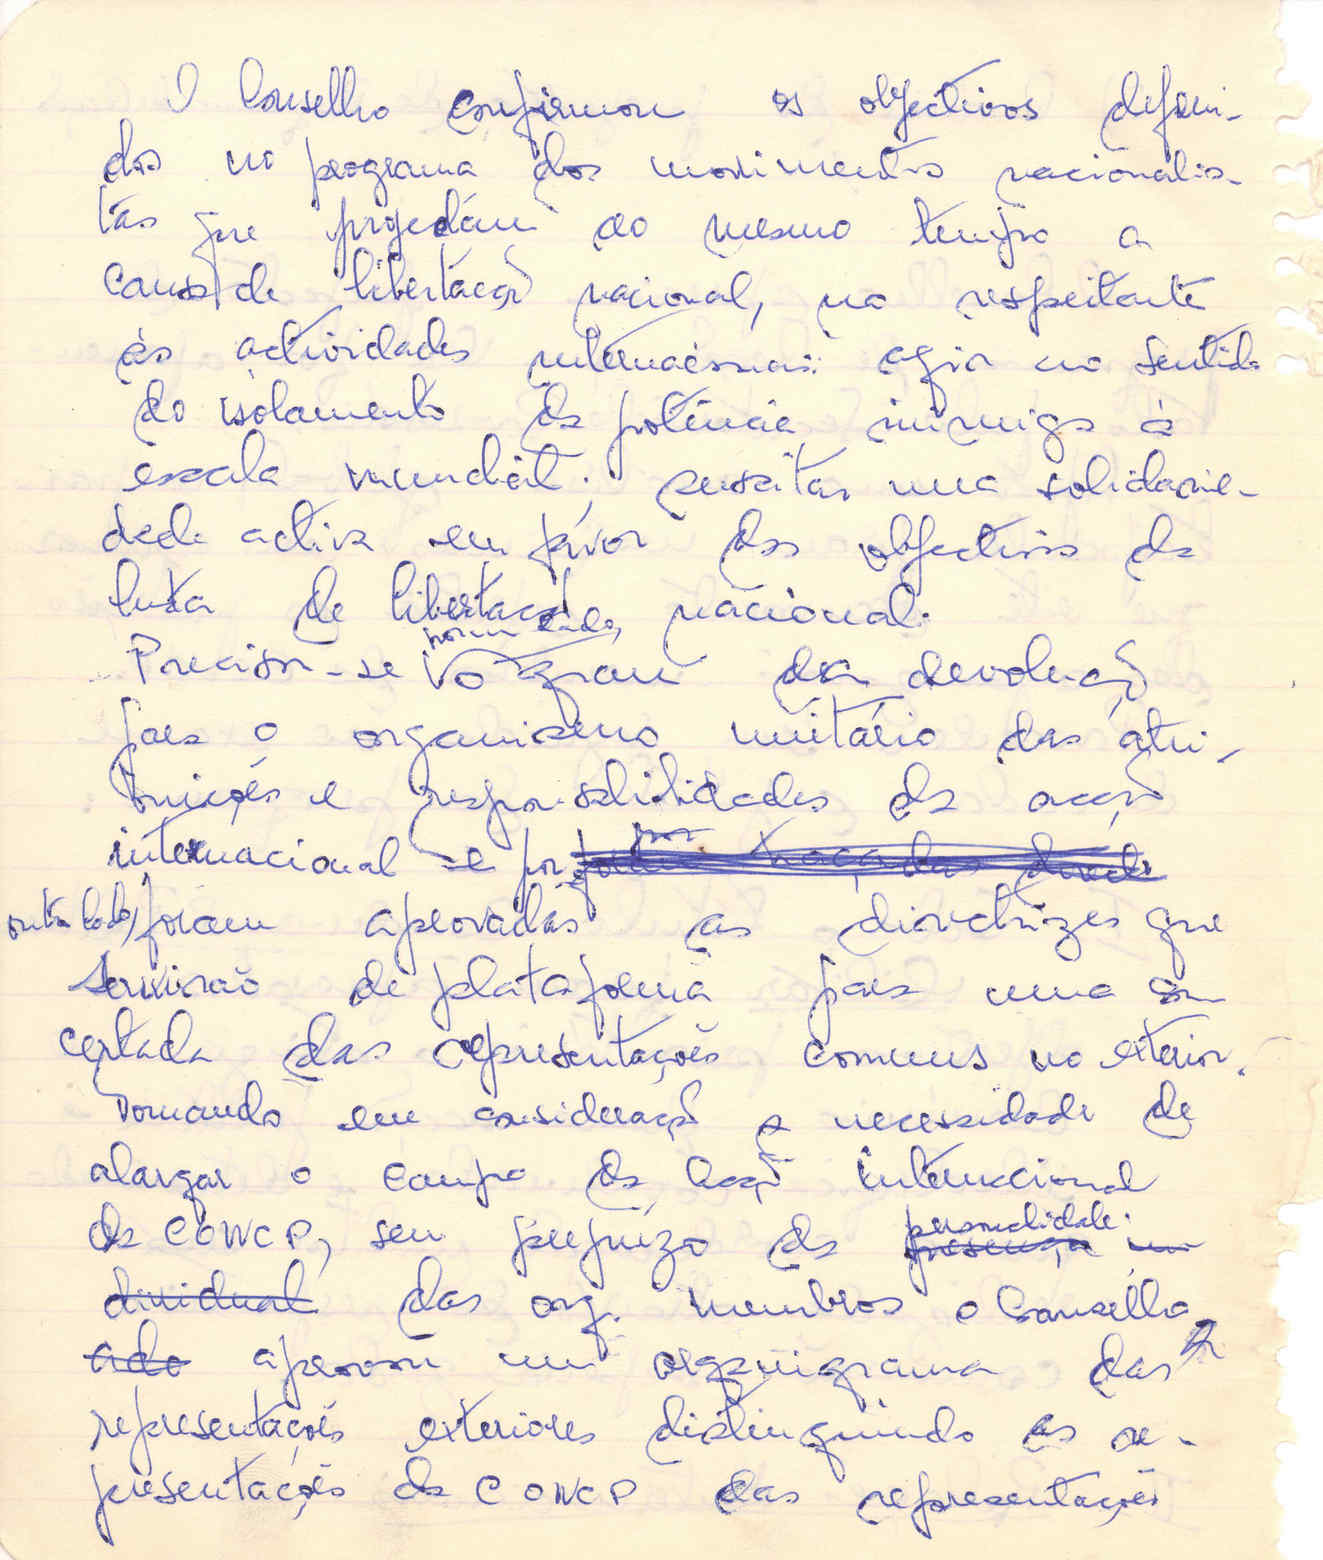 O Conselho confirmou os objectivos defini-
dos no programa dos movimentos nacionalis-
tas que projectam ao mesmo tempo a
causa de libertação nacional, no respeitante
às actividades internacionais: agir no sentido
do isolamento da potência inimiga à
escala mundial; suscitar uma solidarie-
dade activa em favor dos objectivos da
luta de libertação nacional.
Precisou-se por um lado, o grau da devolução
para o organismo unitário das atri-
buições e responsabilidades da acção
internacional e por
outro lado, foram aprovadas as directrizes que
servirão de plataforma para uma con
certada das representações comuns no exterior.
Tomando em consideração a necessidade de
alargar o campo da acção internacional
da CONCP, sem prejuízo da personalidade
das org. membros o Conselho
aprovou um organigrama das
representações exteriores distinguindo as re-
presentações da CONCP das representações